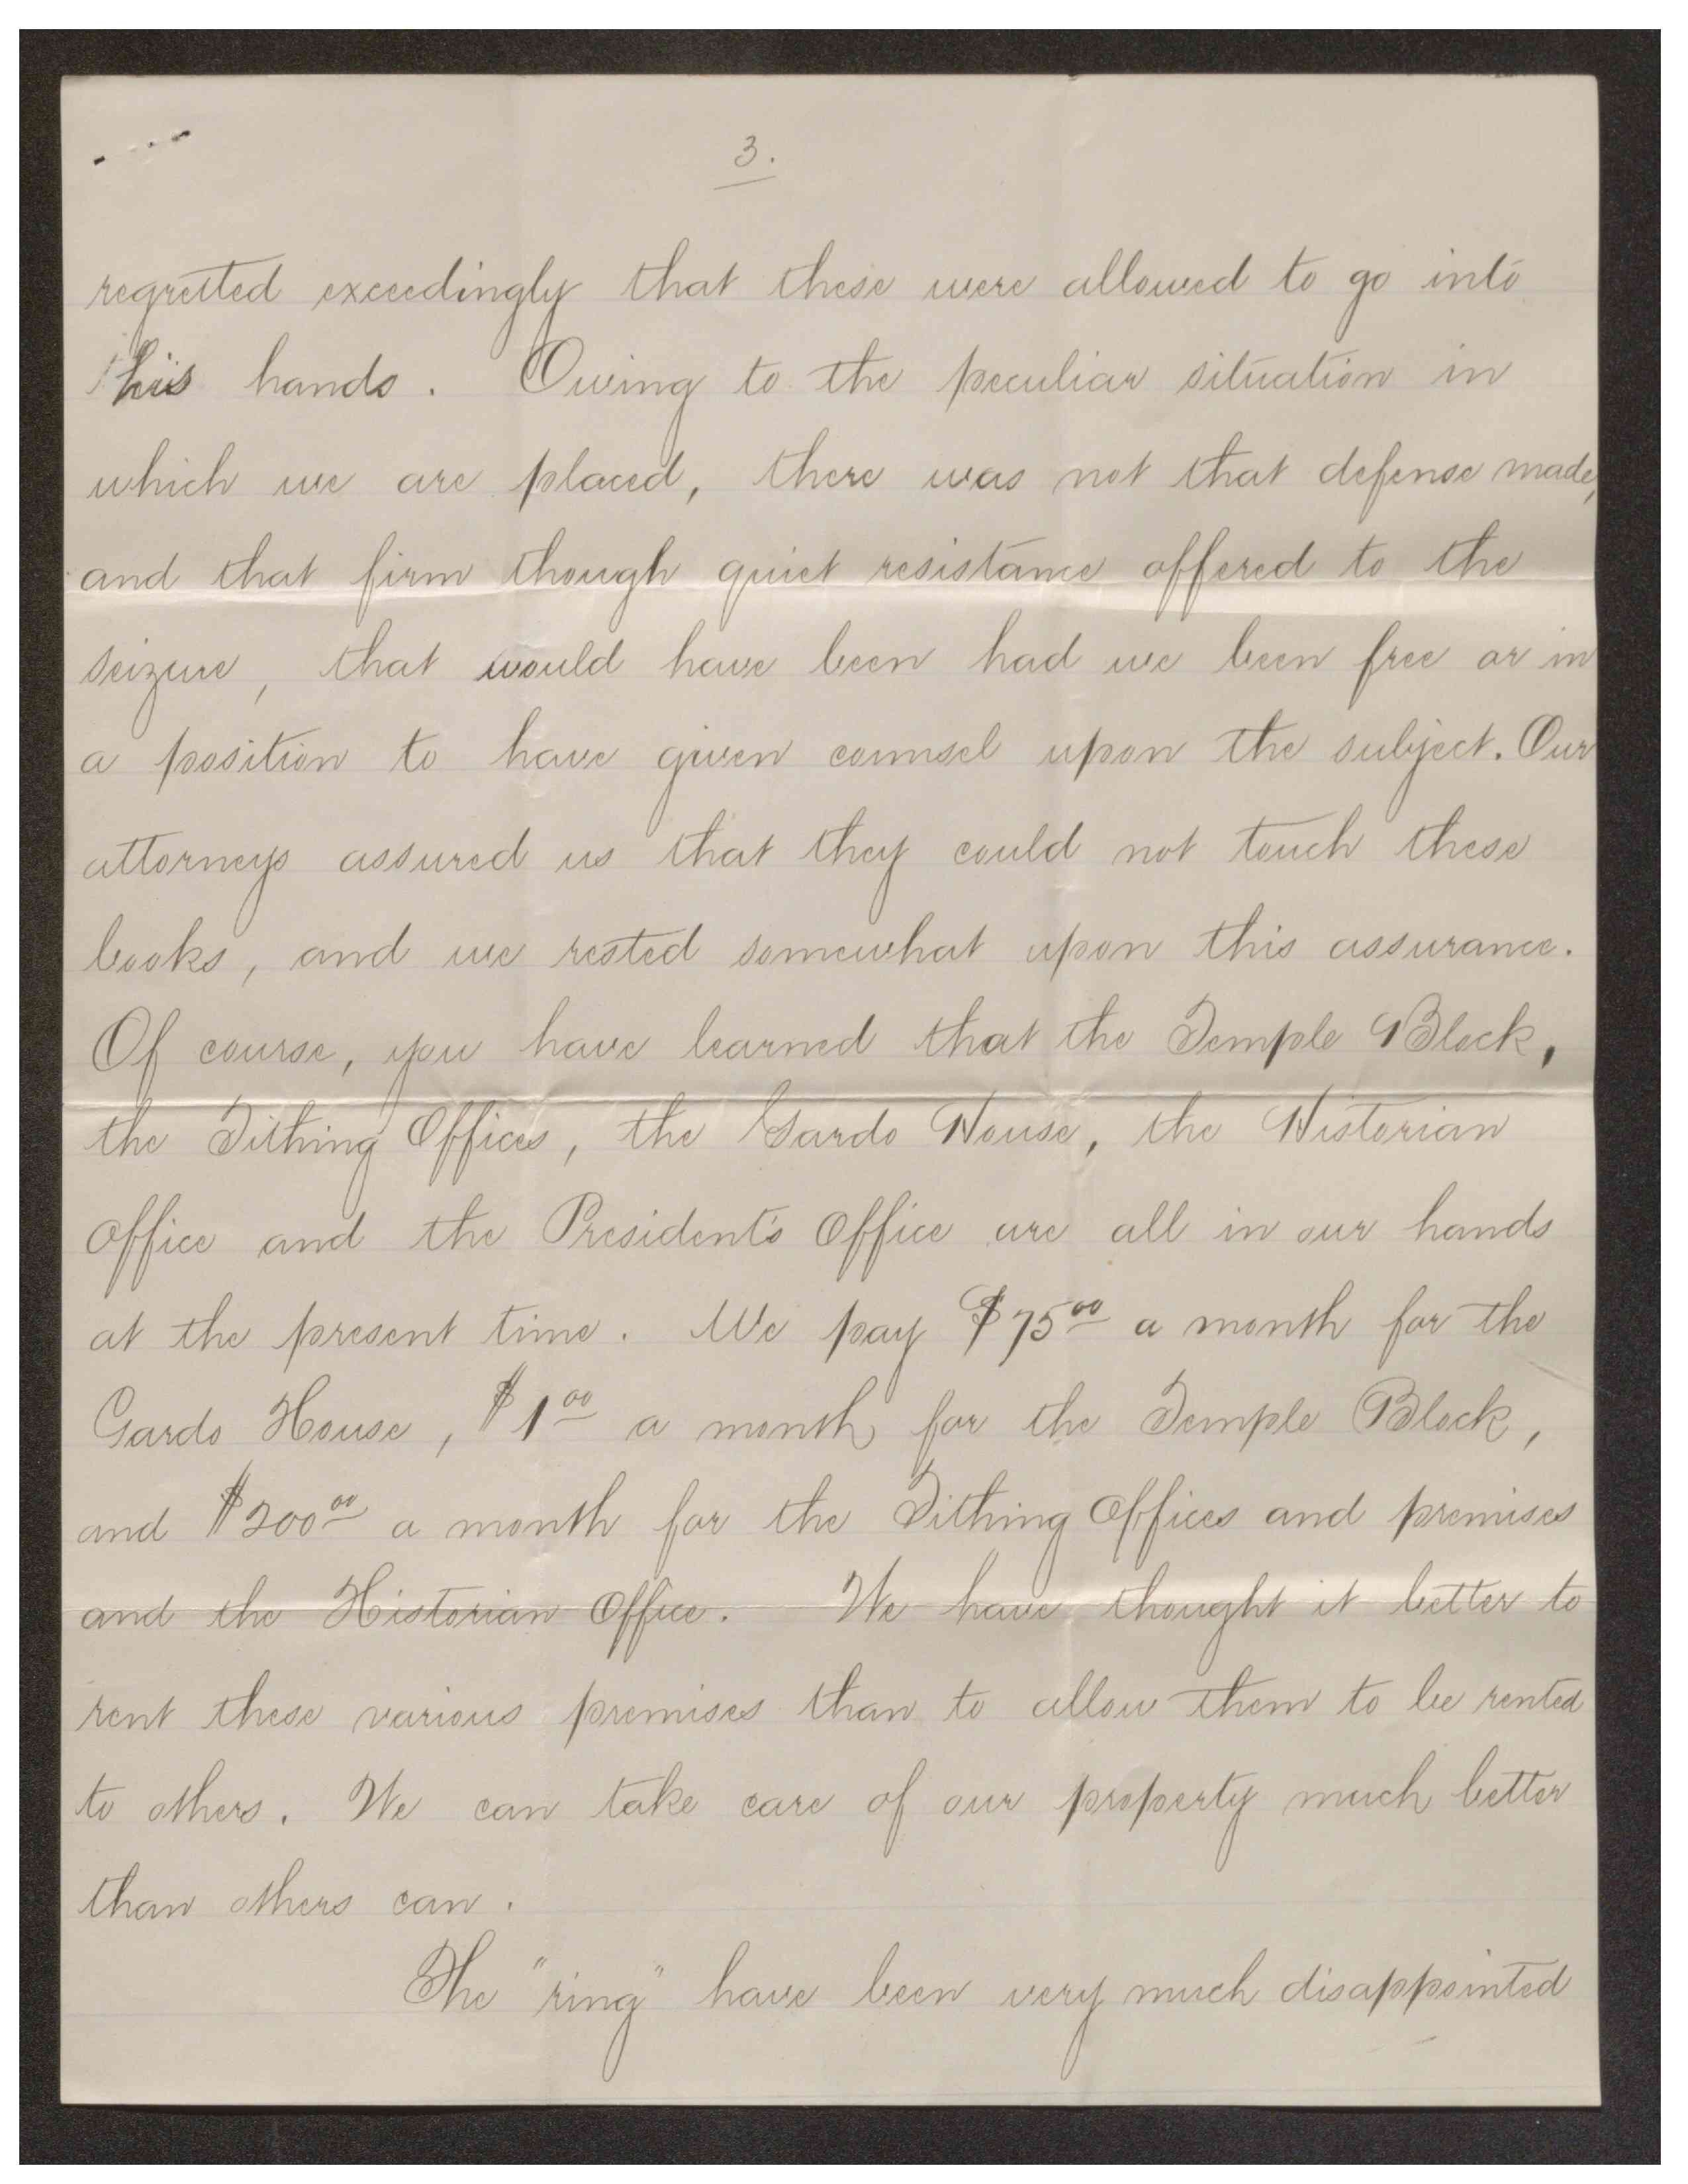 3.
regretted exceedingly that these were allowed to go into
his hands. Owing to the peculiar situation in
which we are placed, there was not that defense made,
and that firm though quiet resistance offered to the
seizure, that would have been had we been free or in
a position to have given counsel upon the subject. Our
attorneys assured us that they could not touch these
books, and we rested somewhat upon this assurance.
Of course, you have learned that the Temple Block,
the Tithing Offices, the Gardo House, the Historian
Office and the President's Office are all in our hands
at the present time. We pay $75.00 a month for the
Gardo House, $1.00 a month for the Temple Block,
and $200.00 a month for the Tithing Offices and premises
and the Historian Office. We have thought it better to
rent these various premises than to allow them to be rented
to others. We can take care of our property much better
than others can.
The "ring" have been very much disappointed